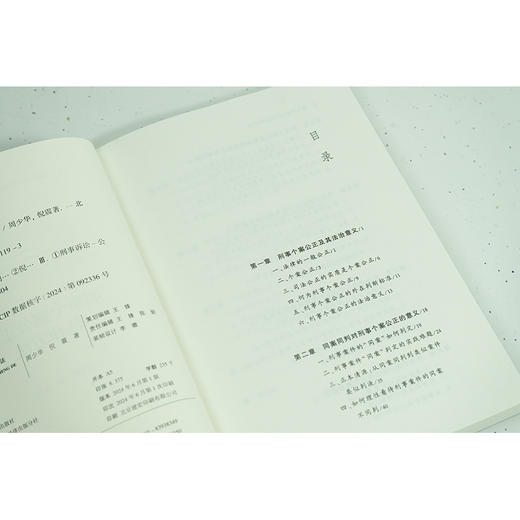 / 周少华, 倪震著. — 北
119 – 3
②倪… Ⅲ. ①刑事诉讼—公
04
CIP 数据核字 (2024) 第 092336 号
周少华 倪 震 著
策划编辑 王 锋
责任编辑 王 锋
装帧设计 李 瞻
开本 A5
印张 6.375
字数 235千
版本 2024年6月第1版
印次 2024年6月第1次印刷
目
录
第一章 刑事个案公正及其法治意义/1
一、法律的一般公正/1
二、个案公正/3
三、司法公正的实质是个案公正/6
四、何为刑事个案公正/8
五、刑事个案公正的外在判断标准/11
六、刑事个案公正的法治意义/15
第二章 同案同判对刑事个案公正的意义/18
一、刑事案件的“同案”如何判定/18
二、刑事案件“同案”判定的实践难题/24
三、正本清源：从同案同判到类似案件
类似判决/28
四、如何理性看待刑事案件的同案
不同判/40